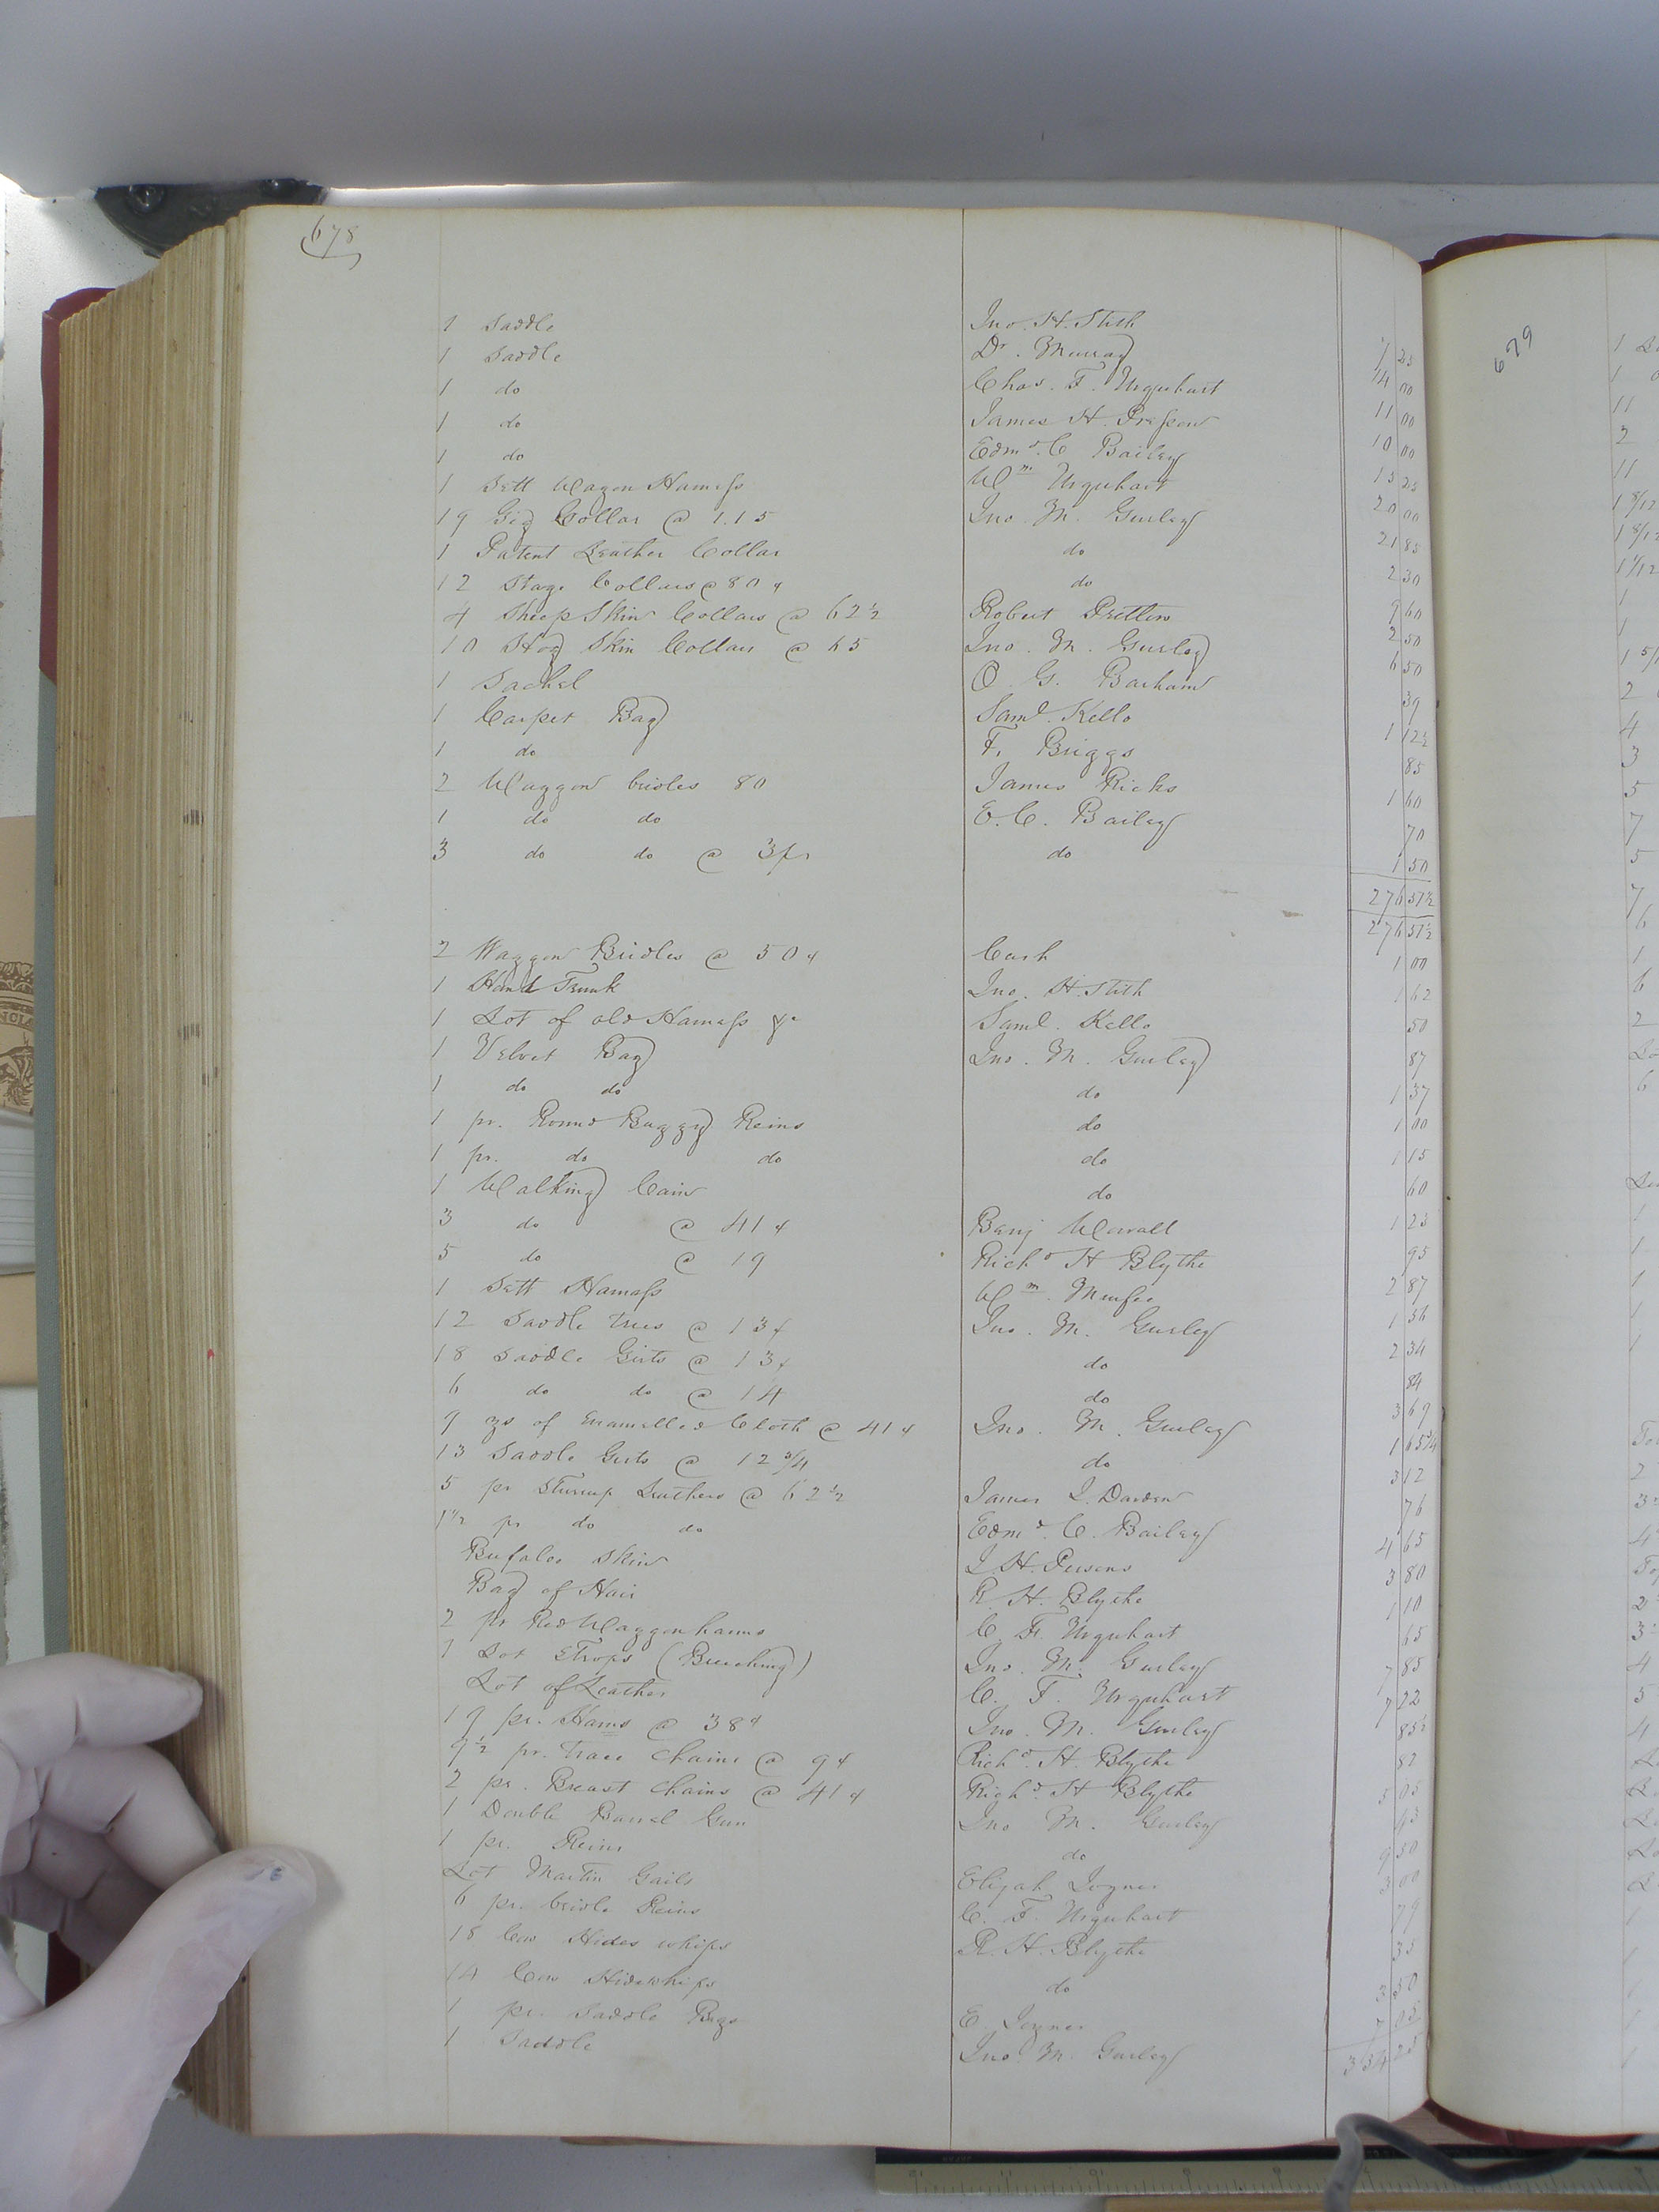 678
1 Saddle Jno. H. Stith 7 25
1 Saddle Dr. Murray 14 00
1 do Chas. F. Urquhart 11 00
1 do James H. Presson 10 00
1 do Edmd. C Bailey 15 25
1 Sett Wagon Harness Wm Urquhart 20 00
19 Gig Collar @ 1.15 Jno. M. Gurley 21 85
1 Patent Leather Collar do 2 30
12 Stage Collars @ 80 ¢ do 9 60
4 Sheep Skin Collars @ 62½ Robert 2 50
10 Hog Skin Collars @ 65 Jno. M. Gurley 6 50
1 Sachel O. G. Barham 39
1 Carpet Bag Saml. Kello 1 12½
1 do F. Briggs 85
2 Waggon bridles 80 James Ricks 1 60
1 do do E. C. Bailey 70
3 do do @ 3/ do 1 50
276 51½
276 51½
2 Waggon Bridles @ 50 ¢ Cash 1 00
1 Hand Trunk Jno. H. Stith 1 62
1 Lot of old Harness &c Saml. Kello 50
1 Velvet Bag Jno. M. Gurley 87
1 do do do 1 37
1 pr. Round Buggy Reins do 1 00
1 pr. do do do 1 15
1 Walking Cain do 60
3 do @ 41 ¢ Benj Worrell 1 23
5 do @ 19 Richd H Blythe 95
1 Sett Harness Wm. 2 87
12 Saddle trees @ 13 ¢ Jno. M. Gurley 1 56
18 Saddle Girts @ 13 ¢ do 2 34
6 do do @ 14 do 84
9 yds of Enamelled Cloth @ 41 ¢ Jno. M. Gurley 3 69
13 Saddle Girts @ 12 3/4 do 1 65 3/4
5 pr Stirrup Leathers @ 62½ James L. Darden 3 12
1½ pr do do Edmd. C. Bailey 76
Bufaloe Skin J. H. Persons 4 65
Bag of Hair R. H. Blythe 3 80
2 pr Red Waggon hames C. F. Urquhart 1 10
1 Lot Strops (Breeching) Jno. M. Gurley 65
Lot of Leather C. F. Urquhart 7 85
19 pr. Hams @ 38 ¢ Jno. M. Gurley 7 22
9½ pr. trace chains @ 9 ¢ Richd. H. Blythe 85½
2 pr. Breast chains @ 41 ¢ Righd. H Blythe 82
1 Double Barrel Gun Jno M. Gurley 5 05
1 pr. Reins do 63
Lot Martin Gails Elijah Joyner 9 50
6 pr. bridle Reins C. F. Urquhart 3 00
18 Cow Hides whips R. H. Blythe 79
14 Cow Hide whips do 35
1 pr. Saddle Bags E. Joyner 3 50
1 Saddle Jno. M. Gurley 7 05
354 25
679
1
1
11
2
11
1 8/12
1 8/12
1 1/12
1
1
1 5/
2
4
3
5
7
5
7
6
1
6
2
6
1
1
1
1
1
2
4
2
4
5
4
1
1
1
1
1